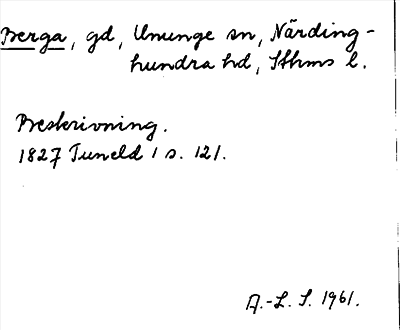 Berga, gd, Ununge sn, Närding-
hundra hd, Sthms l.
Beskrivning.
1827 Tuneld 1 s. 121.
A.-L. S. 1961.